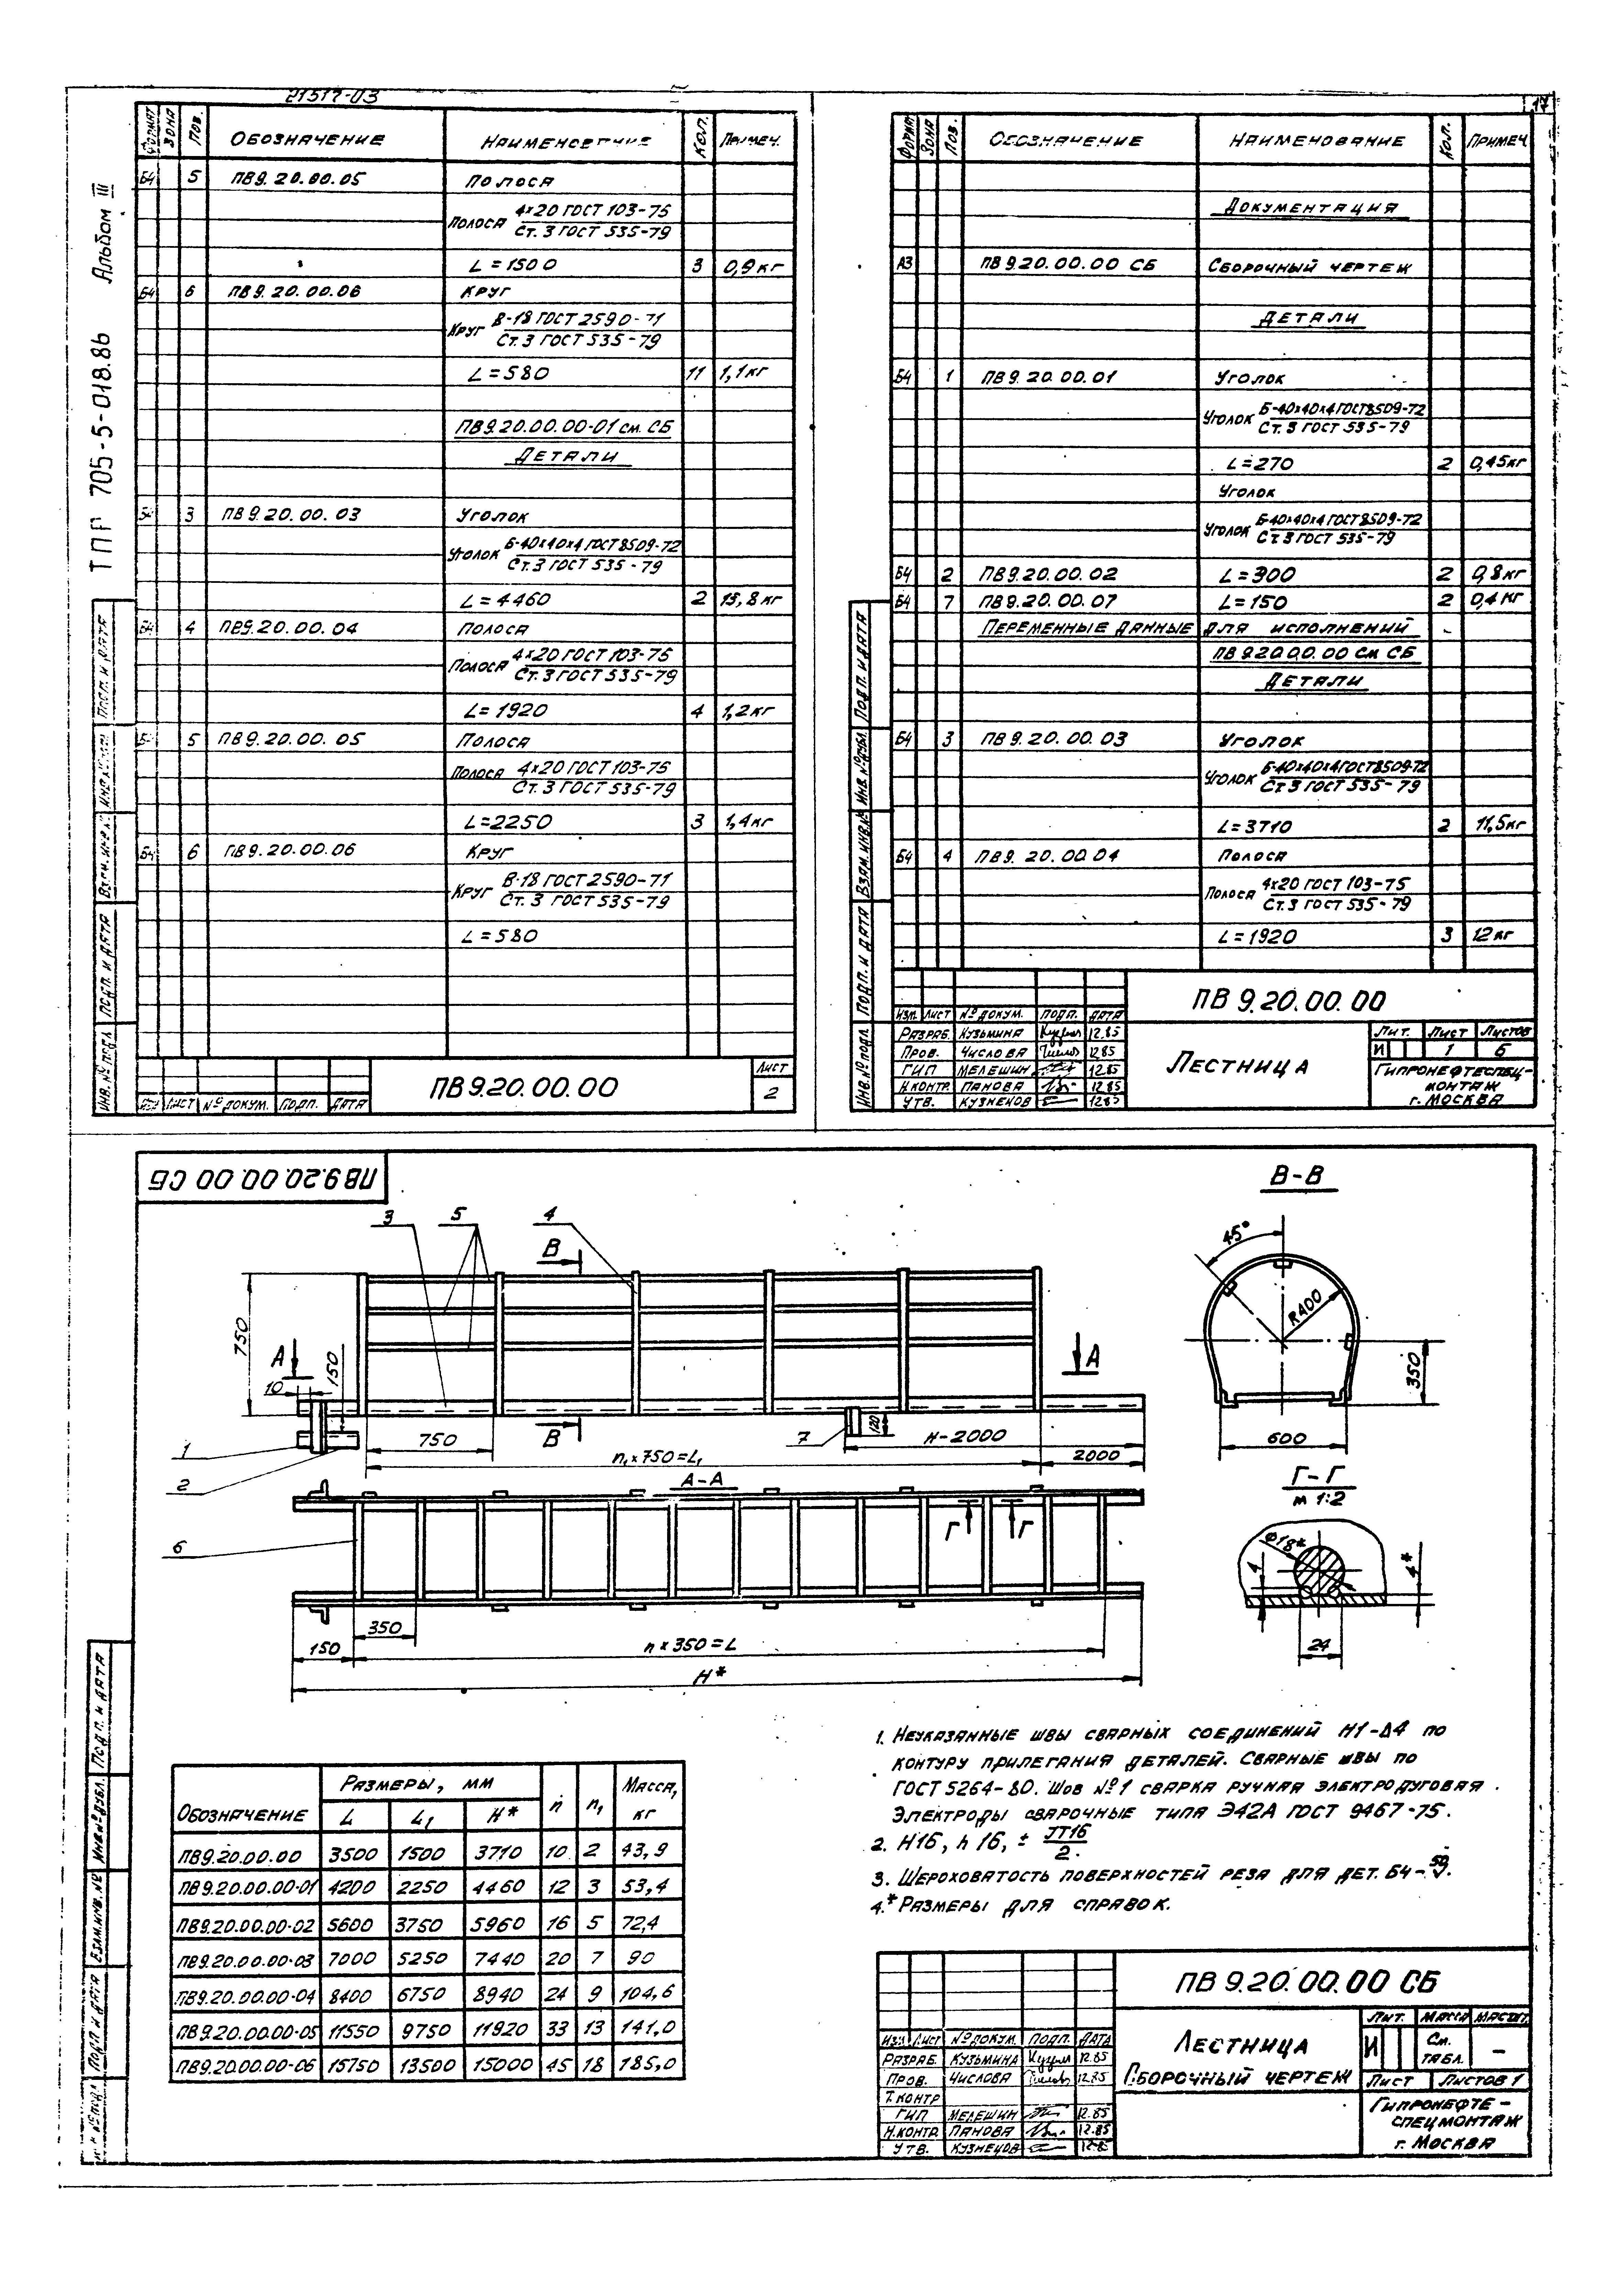 21517-03
17
ТПР 705-5-018.86 Альбом III
Формат Зона Поз. Обозначение Кол. Примеч.
Б4 5 ПВ9.20.00.05 Полоса
Полоса 4х20 ГОСТ 103-76
Ст.3 ГОСТ 535-79
L=1500 3 0,9кг
Б4 6 ПВ9.20.00.06 Круг
Круг В-18 ГОСТ 2590-71
Ст.3 ГОСТ 535-79
L=580 11 1,1кг
ПВ9.20.00.00-01 см. СБ
Детали
Б4 3 ПВ9.20.00.03 Уголок
Уголок Б-40х40х4 ГОСТ 8509-72
Ст.3 ГОСТ 535-79
L=4460 2 13,8кг
Б4 4 ПВ9.20.00.04 Полоса
Полоса 4х20 ГОСТ 103-76
Ст.3 ГОСТ 535-79
L=1920 4 1,2кг
Б4 5 ПВ9.20.00.05 Полоса
Полоса 4х20 ГОСТ 103-76
Ст.3 ГОСТ 535-79
L=2250 3 1,4кг
Б4 6 ПВ9.20.00.06 Круг
Круг В-18 ГОСТ 2590-71
Ст.3 ГОСТ 535-79
L=580
Изм Лист № докум. Подп. Дата
ПВ9.20.00.00
Лист
2
Инв.№ подл Подп. и дата Взам.инв.№ Подп. и дата
Формат Зона Поз. Обозначение Наименование Кол. Примеч
Документация
А3 ПВ9.20.00.00 СБ Сборочный чертеж
Детали
Б4 1 ПВ9.20.00.01 Уголок
Уголок Б-40х40х4 ГОСТ 8509-72
Ст.3 ГОСТ 535-79
L=270 2 0,45кг
Уголок
Уголок Б-40х40х4 ГОСТ 8509-72
Ст.3 ГОСТ 535-79
Б4 2 ПВ9.20.00.02 L=300 2 0,8кг
Б4 7 ПВ9.20.00.07 L=150 2 0,4кг
Переменные данные для исполнений
ПВ9.20.00.00 см СБ
Детали
Б4 3 ПВ9.20.00.03 Уголок
Уголок Б-40х40х4 ГОСТ 8509-72
Ст.3 ГОСТ 535-79
L=3710 2 11,5кг
Б4 4 ПВ9.20.00.04 Полоса
Полоса 4х20 ГОСТ 103-75
Ст.3 ГОСТ 535-79
L=1920 3 12кг
Инв.№ подл Подп. и дата Взам.инв.№ Инв №дубл. Подп. и дата
Изм. Лист № докум. Подп. Дата
Разраб. Кузьмина 12.85
Пров. Числова 12.85
ГИП Мелешин 12.85
Н.контр. Панова 12.85
Утв. Кузнецов 12.85
ПВ 9.20.00.00
Лестница
Лит. Лист Листов
И 1 6
Гипронефтеспец-
монтаж
г. Москва
ПВ9.20.00.00 СБ
3 5 4
В
В
750
А
А
150
10
1
2
750
n₁×750=L₁
7
120
Н-2000
2000
А-А
6
Г Г
350
150
n×350=L
Н*
В-В
45°
R400
350
600
Г-Г
м 1:2
⌀18*
4
4*
24
Обозначение Размеры, мм n n₁ Масса, кг
L L₁ Н*
ПВ9.20.00.00 3500 1500 3710 10 2 43,9
ПВ9.20.00.00-01 4200 2250 4460 12 3 53,4
ПВ9.20.00.00-02 5600 3750 5960 16 5 72,4
ПВ9.20.00.00-03 7000 5250 7440 20 7 90
ПВ9.20.00.00-04 8400 6750 8940 24 9 104,6
ПВ9.20.00.00-05 11550 9750 11920 33 13 141,0
ПВ9.20.00.00-06 15750 13500 15000 45 18 185,0
1. Неуказанные швы сварных соединений Н1-Δ4 по
контуру прилегания деталей. Сварные швы по
ГОСТ 5264-80. Шов №1 сварка ручная электродуговая.
Электроды сварочные типа Э42А ГОСТ 9467-75.
2. Н16, h16, ± JT16/2.
3. Шероховатость поверхностей реза для дет. Б4-
4.* Размеры для справок.
Подп. и дата Взам.инв.№ Инв №дубл. Подп. и дата
Изм Лист № докум. Подп. Дата
Разраб. Кузьмина 12.85
Пров. Числова 12.85
Т.контр
ГИП Мелешин 12.85
Н.контр. Панова 12.85
Утв. Кузнецов 12.85
ПВ 9.20.00.00 СБ
Лестница
Сборочный чертеж
Лит. Масса Масшт.
И См. табл. –
Лист Листов 1
Гипронефте-
спецмонтаж
г. Москва